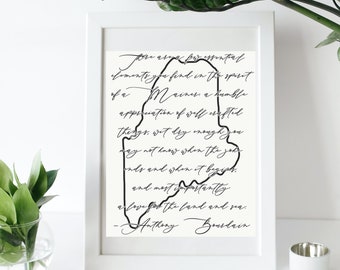 There are a few essential
elements you find in the spirit
of a Mainer a humble
appreciation of well crafted
things, wit dry enough you
may not know when the joke
ends and when it begins,
and most importantly
a love for the land and sea.
- Anthony Bourdain